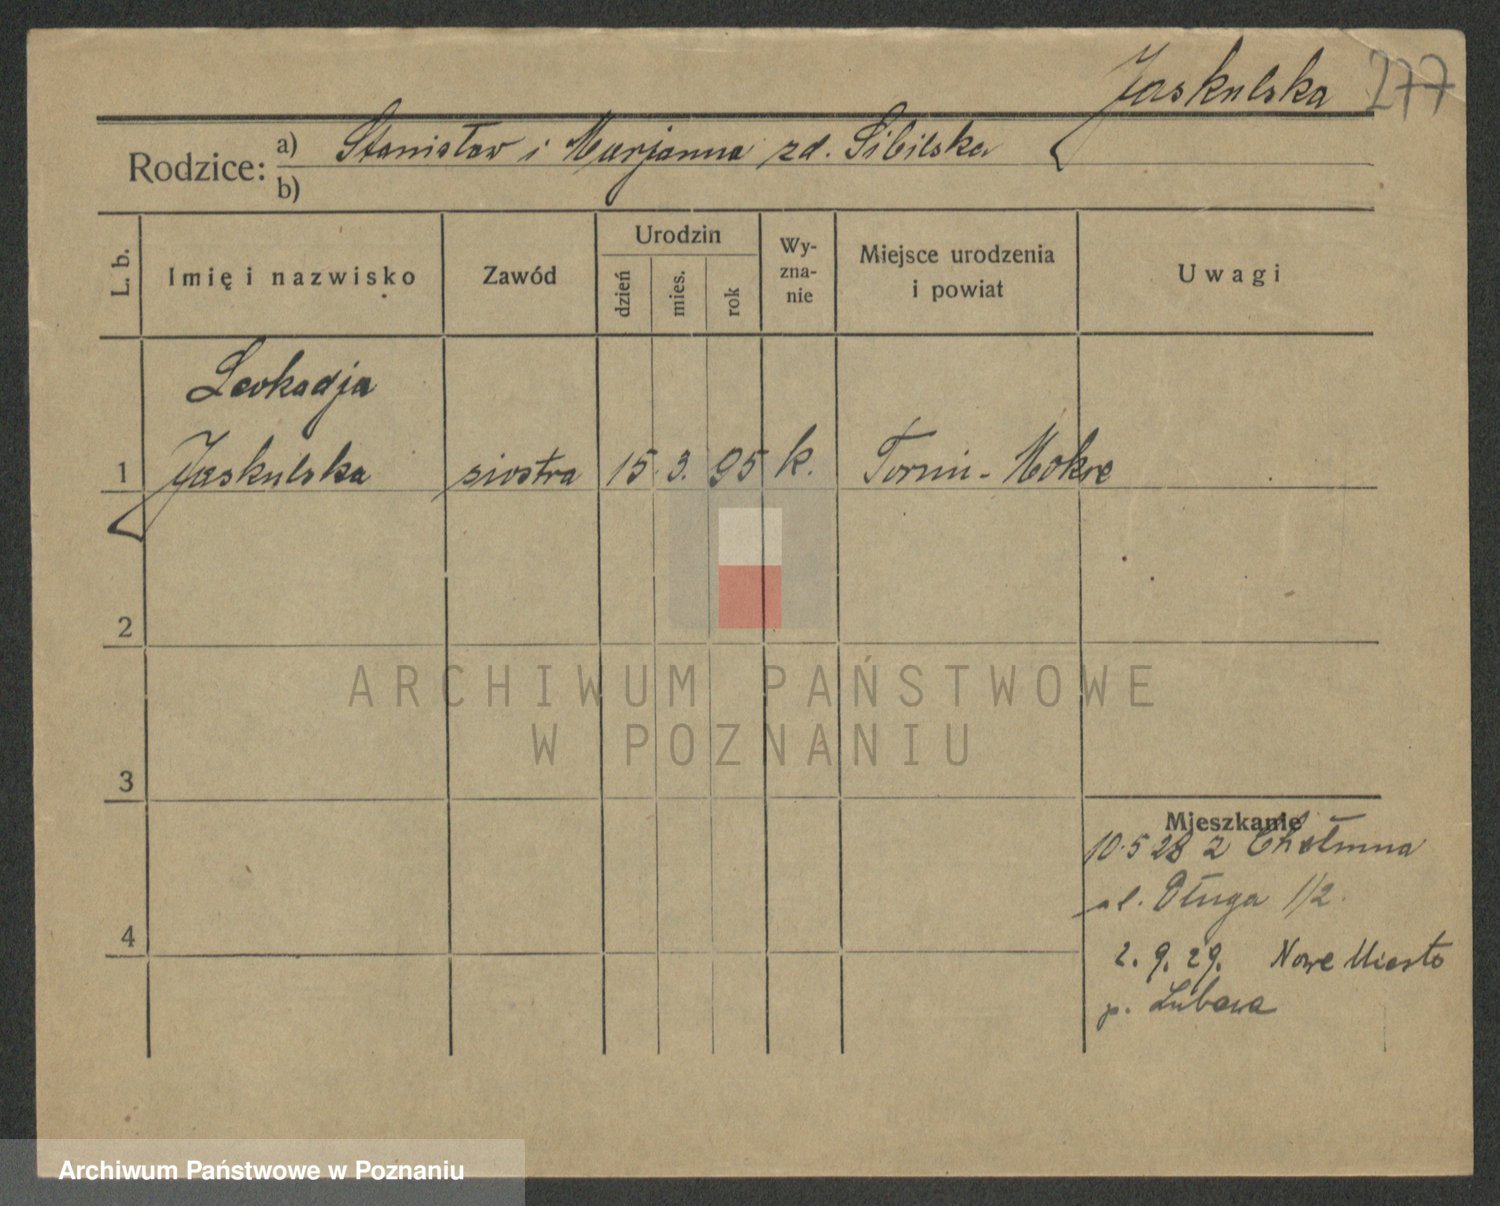 Jaskulska 277
Rodzice: a) Stanisław i Marjanna zd. Sibilska
b)
L. b. Imię i nazwisko Zawód Urodzin dzień mies. rok Wy-zna-nie Miejsce urodzenia i powiat Uwagi
Leokadja
1 Jaskulska siostra 15. 3. 95 k. Toruń - Mokre
2
3
Mieszkanie
10.5 28 z Chełmna
ul. Długa 1/2.
4
2. 9. 29. Nowe Miasto
p. Lubawa
ARCHIWUM PAŃSTWOWE
W POZNANIU
Archiwum Państwowe w Poznaniu